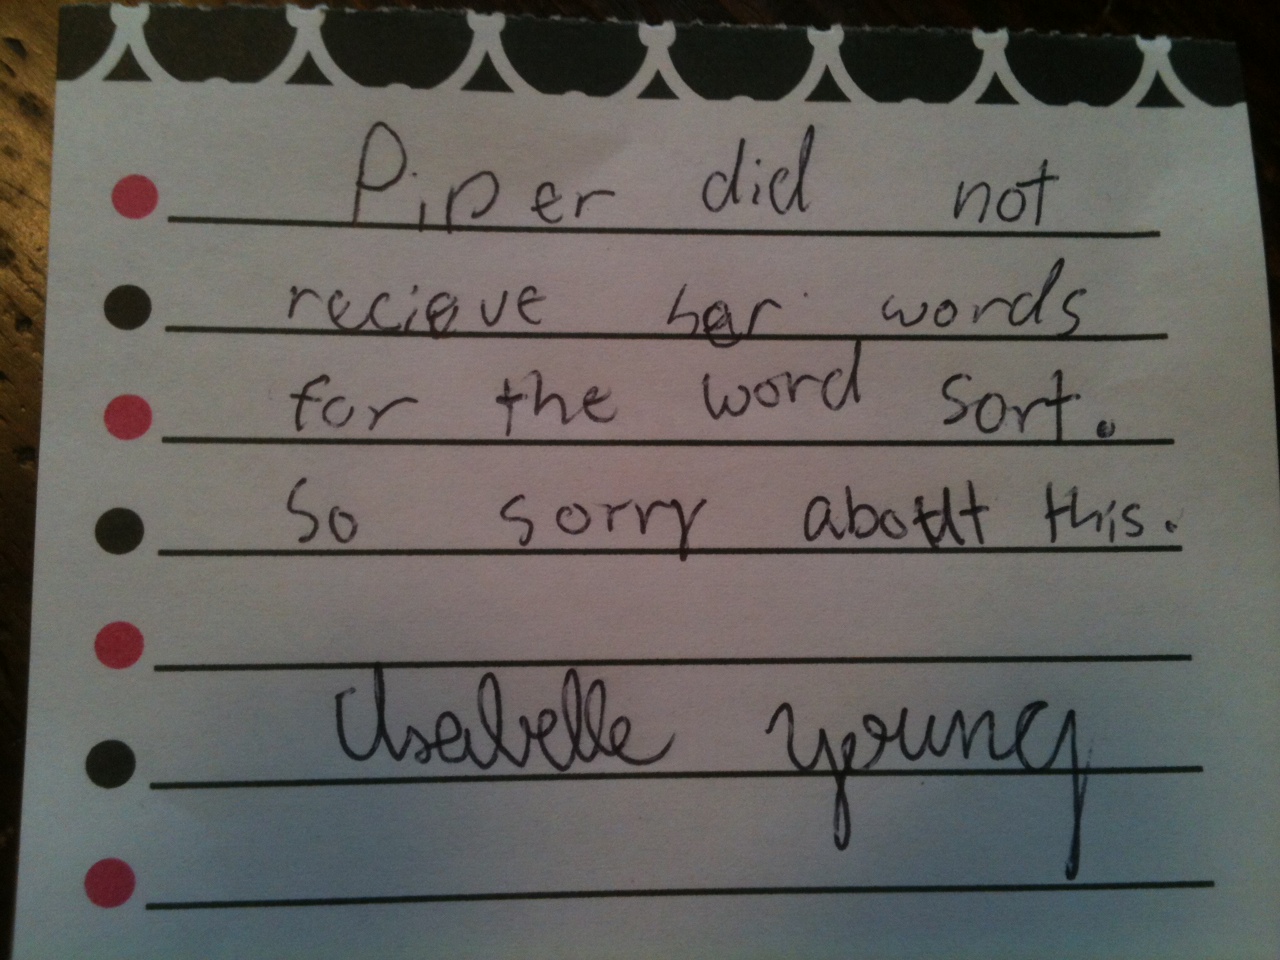 Piper did not
recieve her words
for the word sort.
So sorry about this.
Isabelle young